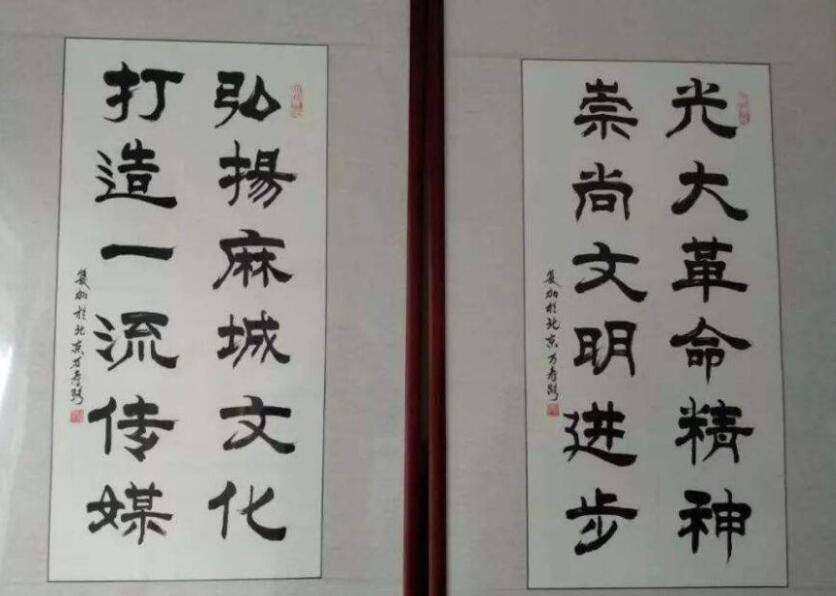 光大革命精神
崇尚文明进步
於北京万寿路
弘揚麻城文化
打造一流传媒
於北京万寿路